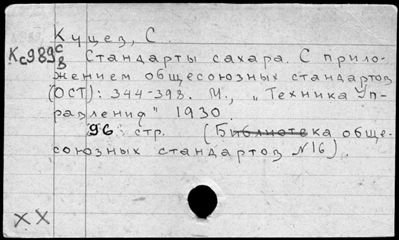 Куцев, С.
Кс989 с/в
Стандарты сахара. С прило-
жением общесоюзных стандартов
(ОСТ): 344-393. М., "Техника упр-
равления" 1930.
96 стр. (Библиотека обще-
союзных стандартов №16).
XX